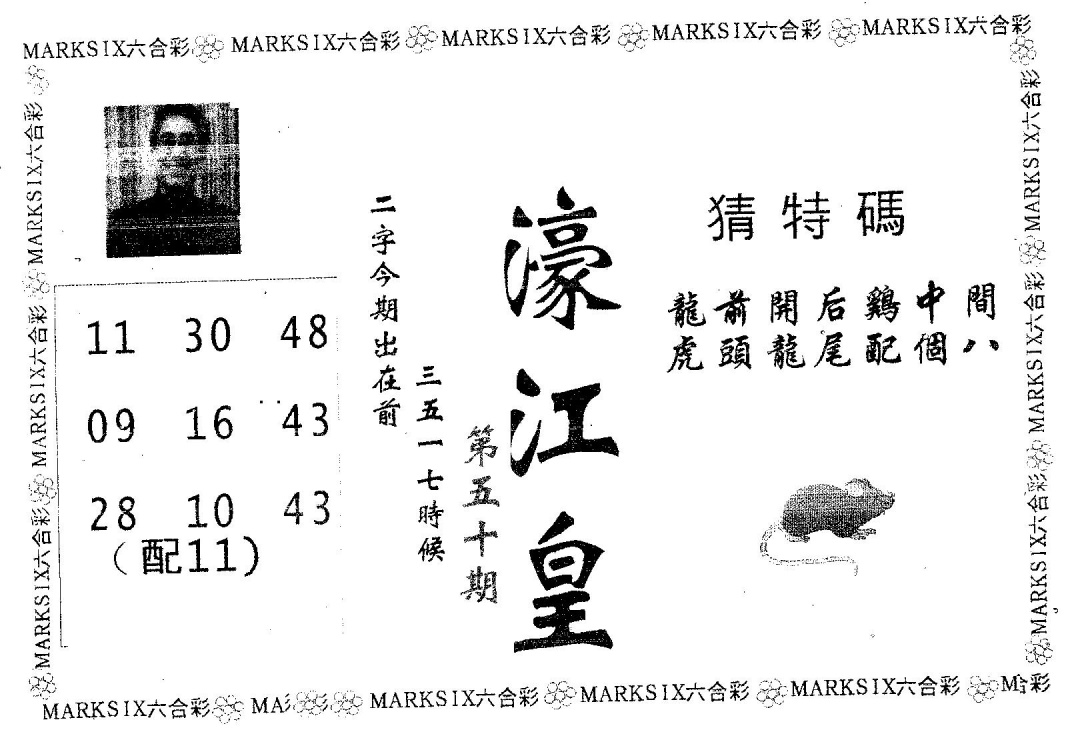 MARKSIX六合彩 MARKSIX六合彩 MARKSIX六合彩 MARKSIX六合彩 MARKSIX六合彩
MARKSIX六合彩 MARKSIX六合彩 MARKSIX六合彩
11 30 48
09 16 43
28 10 43
(配11)
二字今期出在前
三五一七時候
第五十期
濠江皇
猜特碼
龍前開后鷄中間
虎頭龍尾配個八
MARKSIX六合彩 MARKSIX六合彩 MARKSIX六合彩
MARKSIX六合彩 MA彡 MARKSIX六合彩 MARKSIX六合彩 MARKSIX六合彩